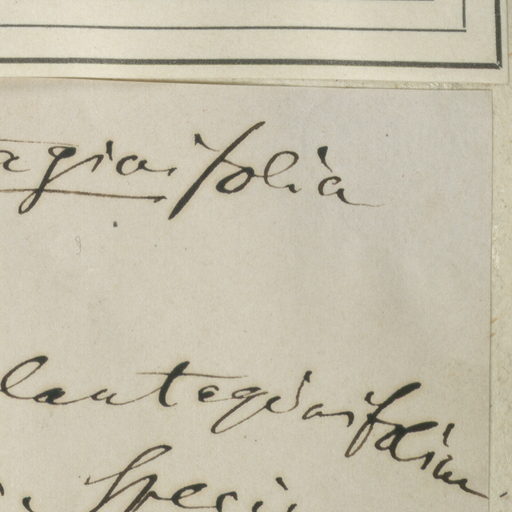 agiaifolia
lantagiaifolium
Speci